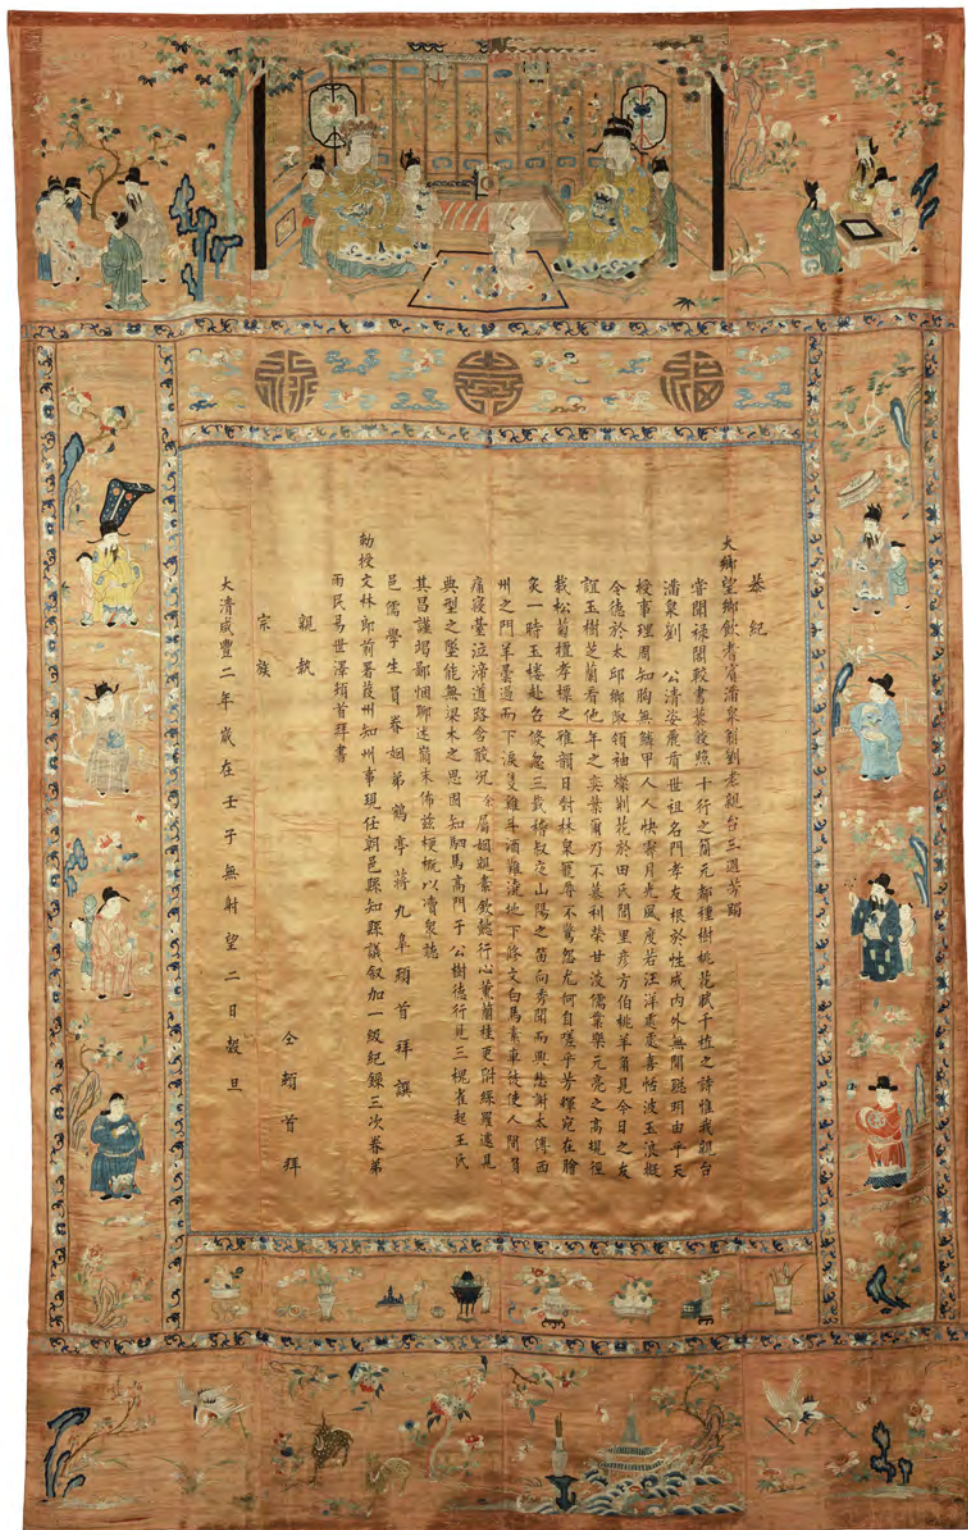 福 壽 祿
恭紀
大鄉望鄉飲耆賓湳泉翁劉老親台三週芳躅
嘗聞祿閣較書藜夜照十行之簡元都種樹桃花賦千植之詩惟我親台
湳泉劉 公清姿麗質世祖名門孝友根於性成內外無間聰明由乎天
授事理周知胸無鱗甲人人快霽月光風度若汪洋處處喜恬波玉浪擬
令德於太邱鄉陬領袖燦荆花於田氏閭里彥方伯桃羊角見今日之友
誼玉樹芝蘭看他年之奕葉爾乃不慕利榮甘淡儒業樂元亮之高規徑
栽松菊檀孝標之雅韻日對林泉寵辱不驚怨尤何自嗟乎芳輝宛在膾
炙一時玉楼赴召倏忽三載嵇叔夜山陽之笛向秀聞而興悲謝太傅西
州之門羊曇過而下淚隻雞斗酒難澆地下脩文白馬素車徒使人間
痛寢臺泣涕道路含酸況余屬姻親素欽懿行心薰蘭桂更附絲羅遽見
典型之墜能無梁木之思固知駟馬高門于公樹德行見三槐崔起王氏
其昌謹竭鄙悃聊述蒭末佈茲梗概以瀆衆聽
邑儒學生員眷姻弟鶴亭蔣九皋頓首拜譔
勅授文林郎前署葭州知州事現任朝邑縣知縣議叙加一級紀錄三次眷弟
雨民易世澤頓首拜書
親執
宗族
仝頓首拜
大清咸豐二年歲在壬子無射望二日穀旦